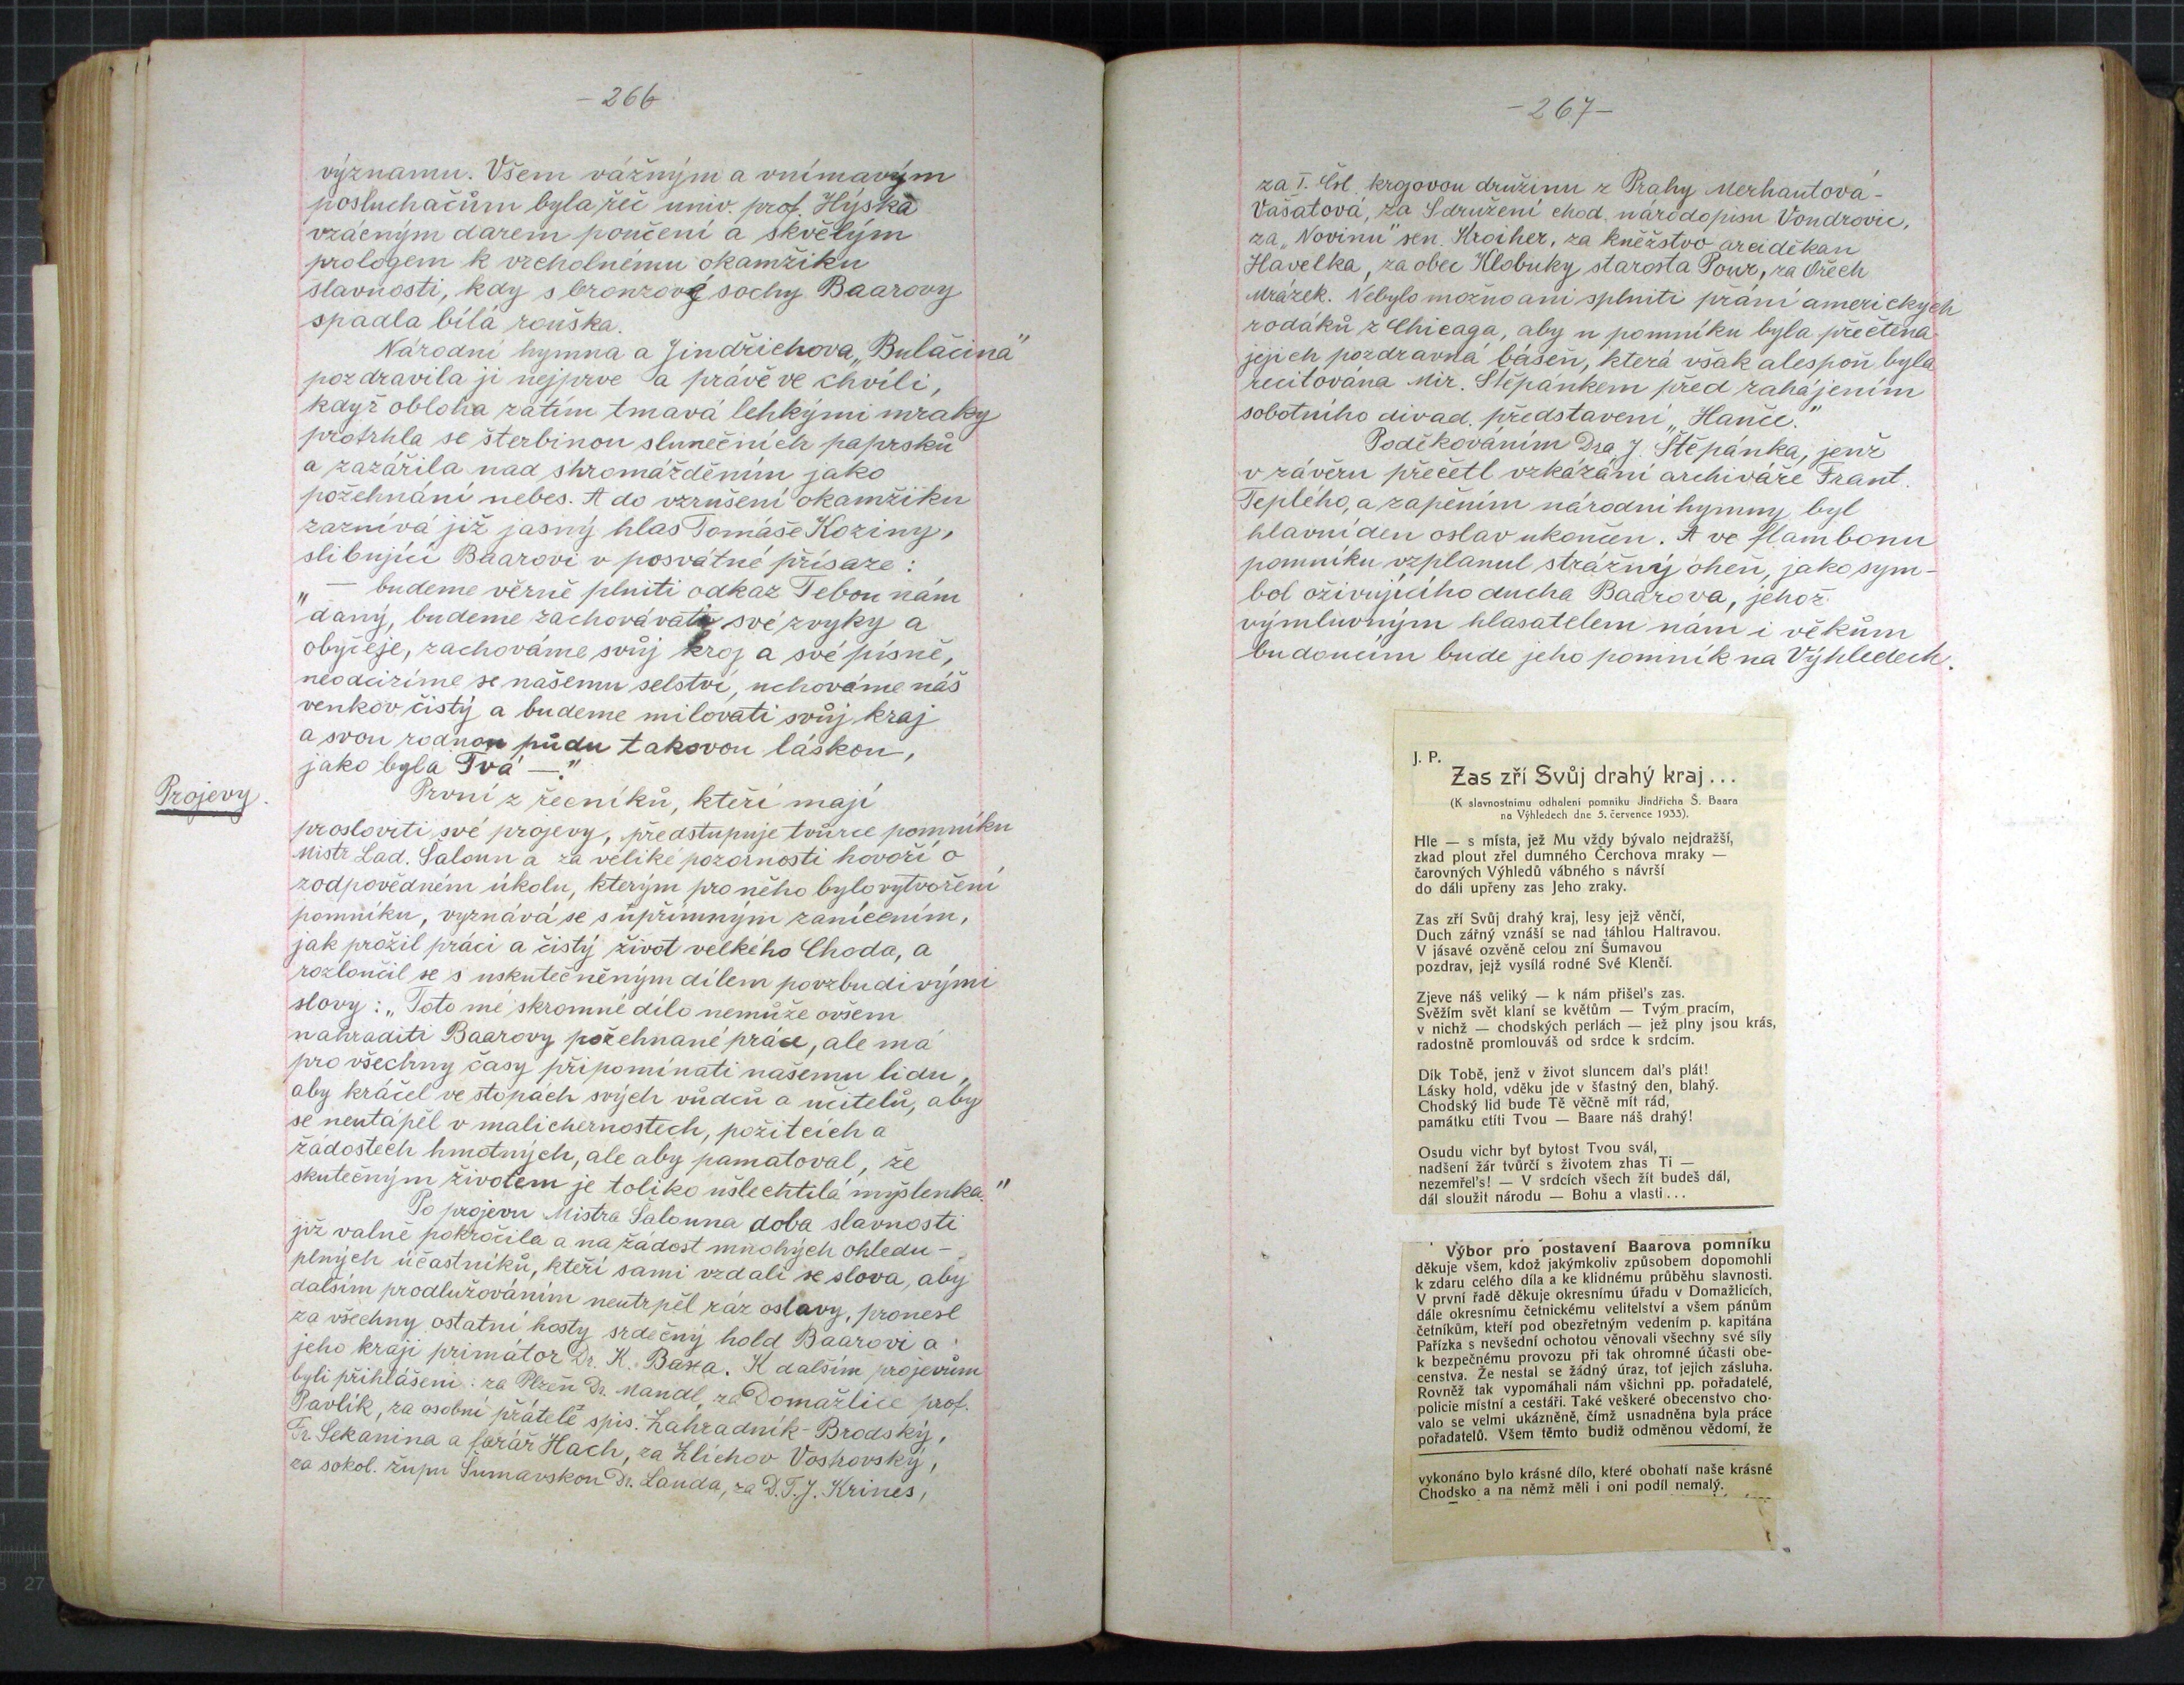 - 266
významu. Všem vážným a vnímavým
posluchačům byla řeč univ. prof. Hýska
vzácným darem poučení a skvělým
prologem k vrcholnému okamžiku
slavnosti, kdy s bronzové sochy Baarovy
spadla bílá rouška.
Národní hymna a Jindřichova „Bulačina"
pozdravila ji nejprve a právě ve chvíli,
když obloha zatím tmavá lehkými mraky
protrhla se šterbinou slunečních paprsků
a zazářila nad shromážděním jako
požehnání nebes. A do vzrušení okamžiku
zaznívá již jasný hlas Tomáše Koziny,
slibující Baarovi v posvátné přísaze:
„— budeme věrně plniti odkaz Tebou nám
daný, budeme zachovávati své zvyky a
obyčeje, zachováme svůj kroj a své písně,
neodcizíme se našemu selství, uchováme náš
venkov čistý a budeme milovati svůj kraj
a svou rodnou půdu takovou láskou,
jako byla Tvá —."
Projevy.
První z řečníků, kteří mají
prosloviti své projevy, předstupuje tvůrce pomníku
Mistr Lad. Šaloun a za veliké pozornosti hovoří o
zodpovědném úkolu, kterým pro něho bylo vytvoření
pomníku, vyznává se s upřímným zanícením,
jak prožil práci a čistý život velkého Choda, a
rozloučil se s uskutečněným dílem povzbudivými
slovy: „Toto mé skromné dílo nemůže ovšem
nahraditi Baarovy požehnané práce, ale má
pro všechny časy připomínati našemu lidu,
aby kráčel ve stopách svých vůdců a učitelů, aby
se neutápěl v malichernostech, požitcích a
žádostech hmotných, ale aby pamatoval, že
skutečným životem je toliko ušlechtilá myšlenka."
Po projevu Mistra Šalouna doba slavnosti
již valně pokročila a na žádost mnohých ohledu-
plných účastníků, kteří sami vzdali se slova, aby
dalším prodlužováním neutrpěl ráz oslavy, pronesl
za všechny ostatní hosty srdečný hold Baarovi a
jeho kraji primátor Dr. K. Baxa. K dalším projevům
byli přihlášeni: za Plzeň Dr. Mandl, za Domažlice prof.
Pavlík, za osobní přátele spis. Zahradník-Brodský,
Fr. Sekanina a farář Hach, za Zlíchov Voskovský,
za sokol. župu Šumavskou Dr. Lauda, za D.T.J. Krines,
- 267 -
za I. Čsl. krojovou družinu z Prahy Merhautová-
Vašatová, za Sdružení chod. národopisu Vondrovic,
za „Novinu" sen. Kroiher, za kněžstvo arciděkan
Havelka, za obec Klobuky starosta Pour, za Ořech
Mrázek. Nebylo možno ani splniti přání amerických
rodáků z Chicaga, aby u pomníku byla přečtena
jejich pozdravná báseň, která však alespoň byla
recitována Mir. Štěpánkem před zahájením
sobotního divad. představení „Hanče."
Poděkováním Dra J. Štěpánka, jenž
v závěru přečetl vzkázání archiváře Frant.
Teplého, a zapěním národní hymny byl
hlavní den oslav ukončen. A ve flambonu
pomníku vzplanul strážný oheň, jako sym-
bol oživujícího ducha Baarova, jehož
výmluvným hlasatelem nám i věkům
budoucím bude jeho pomník na Výhledech.
J. P.
Zas zří Svůj drahý kraj...
(K slavnostnímu odhalení pomníku Jindřicha Š. Baara
na Výhledech dne 5. července 1933).
Hle — s místa, jež Mu vždy bývalo nejdražší,
zkad plout zřel dumného Čerchova mraky —
čarovných Výhledů vábného s návrší
do dáli upřeny zas Jeho zraky.
Zas zří Svůj drahý kraj, lesy jejž věnčí,
Duch zářný vznáší se nad táhlou Haltravou.
V jásavé ozvěně celou zní Šumavou
pozdrav, jejž vysílá rodné Své Klenčí.
Zjeve náš veliký — k nám přišel's zas.
Svěžím svět klaní se květům — Tvým pracím,
v nichž — chodských perlách — jež plny jsou krás,
radostně promlouváš od srdce k srdcím.
Dík Tobě, jenž v život sluncem dal's plát!
Lásky hold, vděku jde v šťastný den, blahý.
Chodský lid bude Tě věčně mít rád,
památku ctíti Tvou — Baare náš drahý!
Osudu vichr byť bytost Tvou svál,
nadšení žár tvůrčí s životem zhas Ti —
nezemřel's! — V srdcích všech žít budeš dál,
dál sloužit národu — Bohu a vlasti...
Výbor pro postavení Baarova pomníku
děkuje všem, kdož jakýmkoliv způsobem dopomohli
k zdaru celého díla a ke klidnému průběhu slavnosti.
V první řadě děkuje okresnímu úřadu v Domažlicích,
dále okresnímu četnickému velitelství a všem pánům
četníkům, kteří pod obezřetným vedením p. kapitána
Pařízka s nevšední ochotou věnovali všechny své síly
k bezpečnému provozu při tak ohromné účasti obe-
censtva. Že nestal se žádný úraz, toť jejich zásluha.
Rovněž tak vypomáhali nám všichni pp. pořadatelé,
policie místní a cestáři. Také veškeré obecenstvo cho-
valo se velmi ukázněně, čímž usnadněna byla práce
pořadatelů. Všem těmto budiž odměnou vědomí, že
vykonáno bylo krásné dílo, které obohatí naše krásné
Chodsko a na němž měli i oni podíl nemalý.